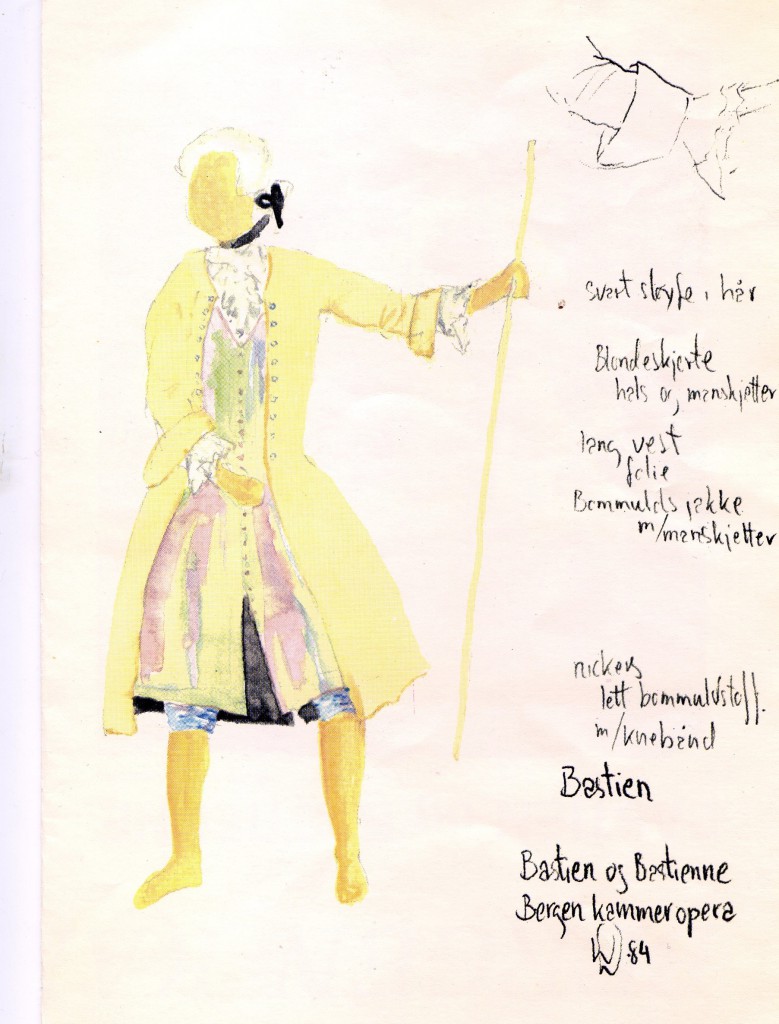 svart sløyfe i hår
Blondeskjorte
hals og manskjetter
lang vest
folie
Bommulds jakke
m/manskjetter
nickers
lett bommuldstoff.
m/knebånd
Bastien
Bastien og Bastienne
Bergen kammeropera
84